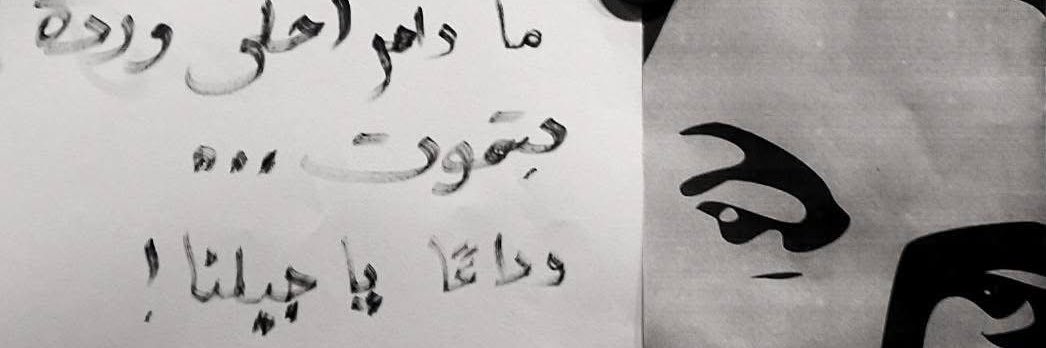 ما دام احلى وردة
بتموت ...
وداعًا يا جيلنا !